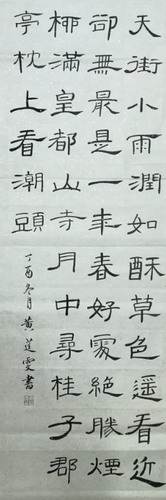 天街小雨潤如酥草色遥看近
卻無最是一年春好處絶勝煙
柳滿皇都山寺月中尋桂子郡
亭枕上看潮頭
丁酉冬月黄莲雯書